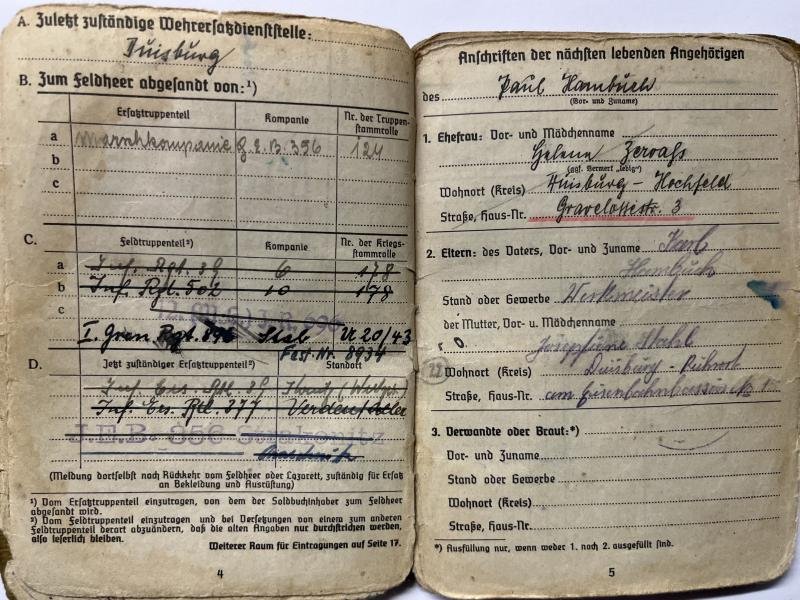 A. Zuletzt zuständige Wehrersatzdienststelle:
Duisburg
B. Zum Feldheer abgesandt von:¹)
Ersatztruppenteil Kompanie Nr. der Truppenstammrolle
a Marschkompanie 356 124
b
c
C. Feldtruppenteil²) Kompanie Nr. der Kriegsstammrolle
a Inf. Rgt. 39 6 178
b Inf. Rgt. 502 10 178
c
I. Gren. Rgt. 896 Stab U 20/43
Nr. 8934
D. Jetzt zuständiger Ersatztruppenteil²) Standort
Inf. Ers. Btl. 39
Inf. Ers. Btl. 377 Verden/Aller
J.E.B. 356
(Meldung dortselbst nach Rückkehr vom Feldheer oder Lazarett, zuständig für Ersatz
an Bekleidung und Ausrüstung)
¹) Vom Ersatztruppenteil einzutragen, von dem der Soldbuchinhaber zum Feldheer
abgesandt wird.
²) Vom Feldtruppenteil einzutragen und bei Versetzungen von einem zum anderen
Feldtruppenteil derart abzuändern, daß die alten Angaben nur durchstrichen werden,
also leserlich bleiben.
Weiterer Raum für Eintragungen auf Seite 17.
4
Anschriften der nächsten lebenden Angehörigen
des Paul Hambuch
(Vor- und Zuname)
1. Ehefrau: Vor- und Mädchenname
Helene
(ggf. Vermerk „ledig")
Wohnort (Kreis) Duisburg - Hochfeld
Straße, Haus-Nr. Gravelottestr. 3
2. Eltern: des Vaters, Vor- und Zuname Karl
Hambuch
Stand oder Gewerbe Werkmeister
der Mutter, Vor- u. Mädchenname
Josephine Stahl
Wohnort (Kreis) Duisburg - Ruhrort
Straße, Haus-Nr. am Eisenbahnbassin No
3. Verwandte oder Braut:*)
Vor- und Zuname
Stand oder Gewerbe
Wohnort (Kreis)
Straße, Haus-Nr.
*) Ausfüllung nur, wenn weder 1. noch 2. ausgefüllt sind.
5